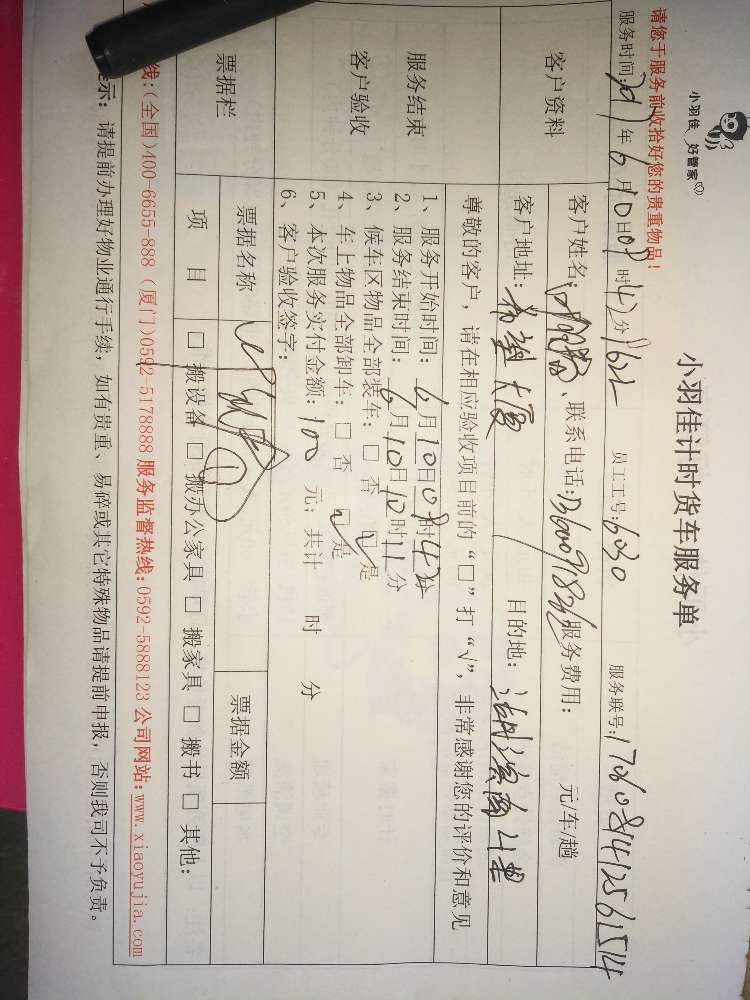 小羽佳 好管家
小羽佳计时货车服务单
请您于服务前收拾好您的贵重物品!
服务时间: 年6月10日09时42分 1622 员工工号: 6030 服务联号: 1706081412561514
客户资料
客户姓名: 、联系电话: 服务费用: 元/车/趟
客户地址: 希望大厦 目的地:
尊敬的客户,请在相应验收项目前的“□”打“√”,非常感谢您的评价和意见
服务结束
客户验收
1、服务开始时间: 6月10日09时42分
2、服务结束时间: 6月10日10时11分
3、候车区物品全部装车: □ 否 ☑ 是
4、车上物品全部卸车: □ 否 ☑ 是
5、本次服务实付金额: 100 元; 共计 时 分
6、客户验收签字:
票据栏
票据名称 票据金额
项 目 □ 搬设备 □ 搬办公家具 □ 搬家具 □ 搬书 □ 其他:
线:(全国)400-6655-888 (厦门)0592-5178888 服务监督热线:0592-5888123 公司网站:www.xiaoyujia.com
示: 请提前办理好物业通行手续, 如有贵重、易碎或其它特殊物品请提前申报, 否则我司不予负责。